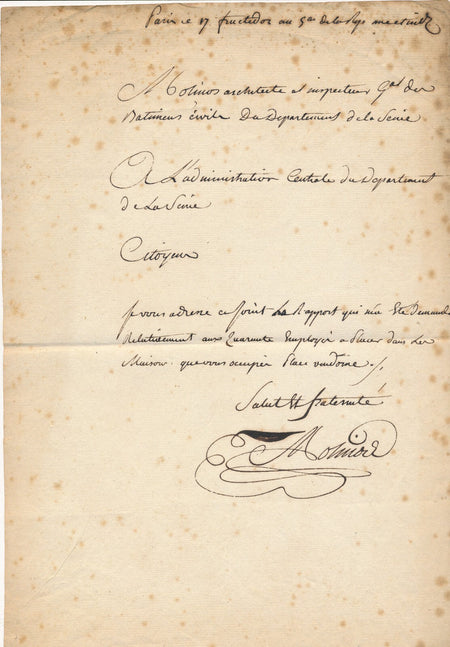 Paris ce 17 fructidor an 5e de la Rep une et indiv
Molinos architecte et inspecteur Gal des
Batimens civils Du Departement de la Seine
A L'administration Centrale du Departement
de La Seine
Citoyens
Je vous adresse ci Joint Le Rapport qui m'a Eté Demandé
Relativement aux Quarante Employés a placer dans Les
Maisons que vous occupés place vendome ./.
Salut Et fraternité
Molinos